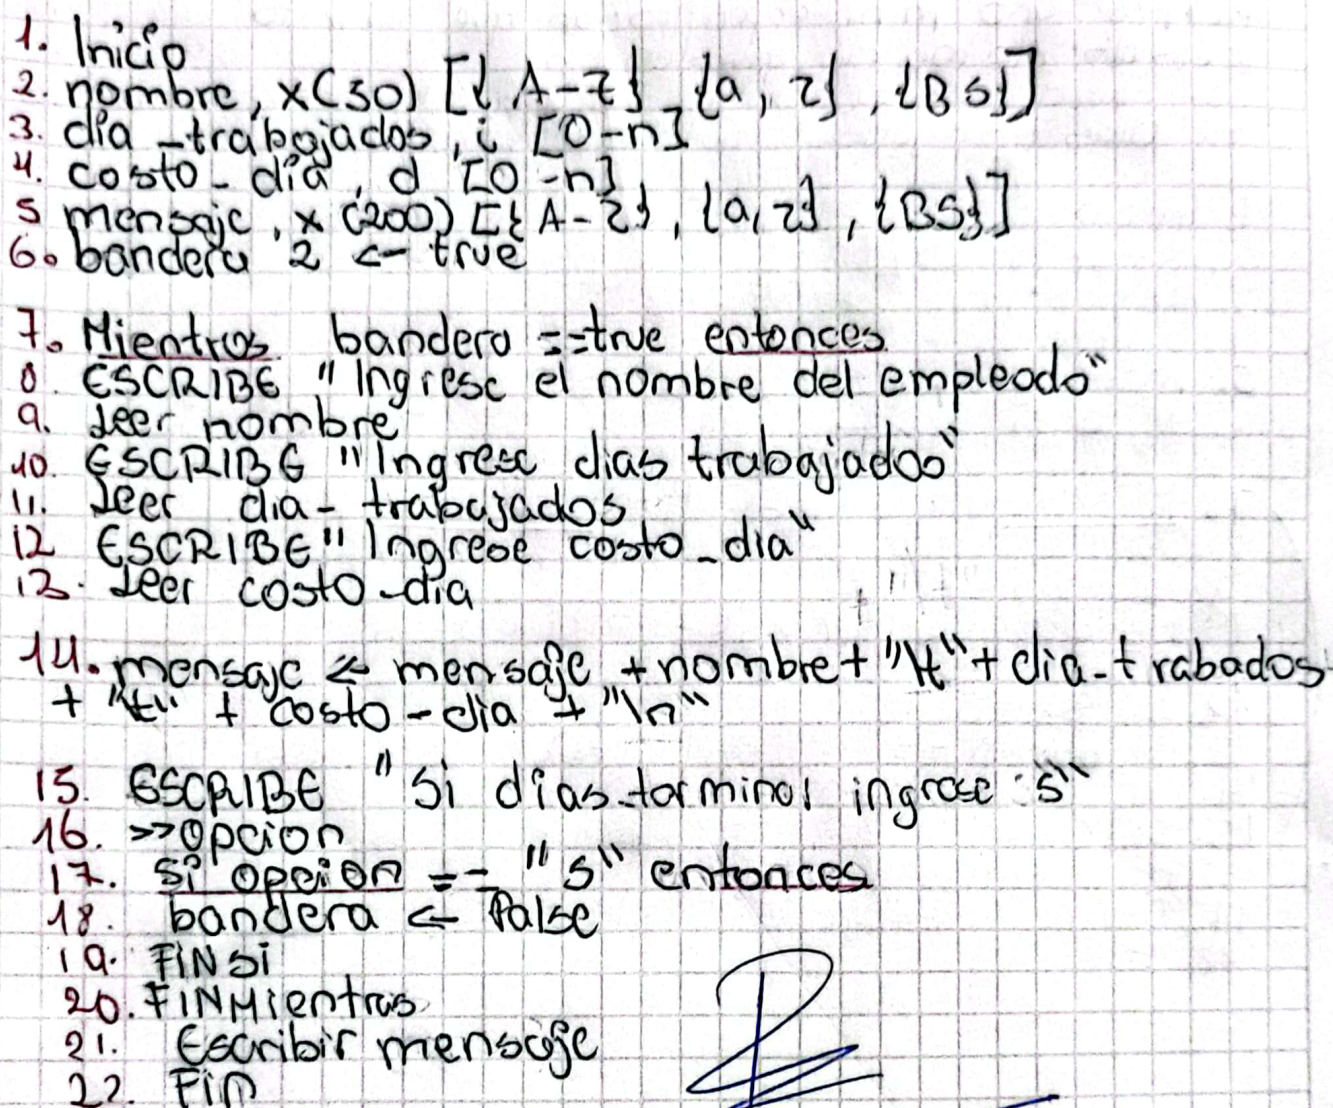 1. Inicio
2. nombre, x(30) [{A-z}, {a, z}, {BS}]
3. día_trabajados, i [0-n]
4. costo_día, d [0-n]
5 mensaje, x (200) [{A-z}, {a,z}, {BS}]
6. bandera 2 <- true
7. Mientras bandera ==true entonces
8. ESCRIBE "Ingrese el nombre del empleado"
9. Leer nombre
10. ESCRIBE "Ingrese dias trabajados"
11. Leer dia_trabajados
12 ESCRIBE "Ingrese costo_dia"
13. Leer costo_dia
14. mensaje <- mensaje + nombre + "\t" + dia_trabados
+ "\t" + costo_dia + "\n"
15. ESCRIBE "Si días terminal ingrese: s"
16. >>Opcion
17. Si opcion == "s" entonces
18. bandera <- False
19. FINSi
20. FINMientras
21. Escribir mensaje
22. Fin